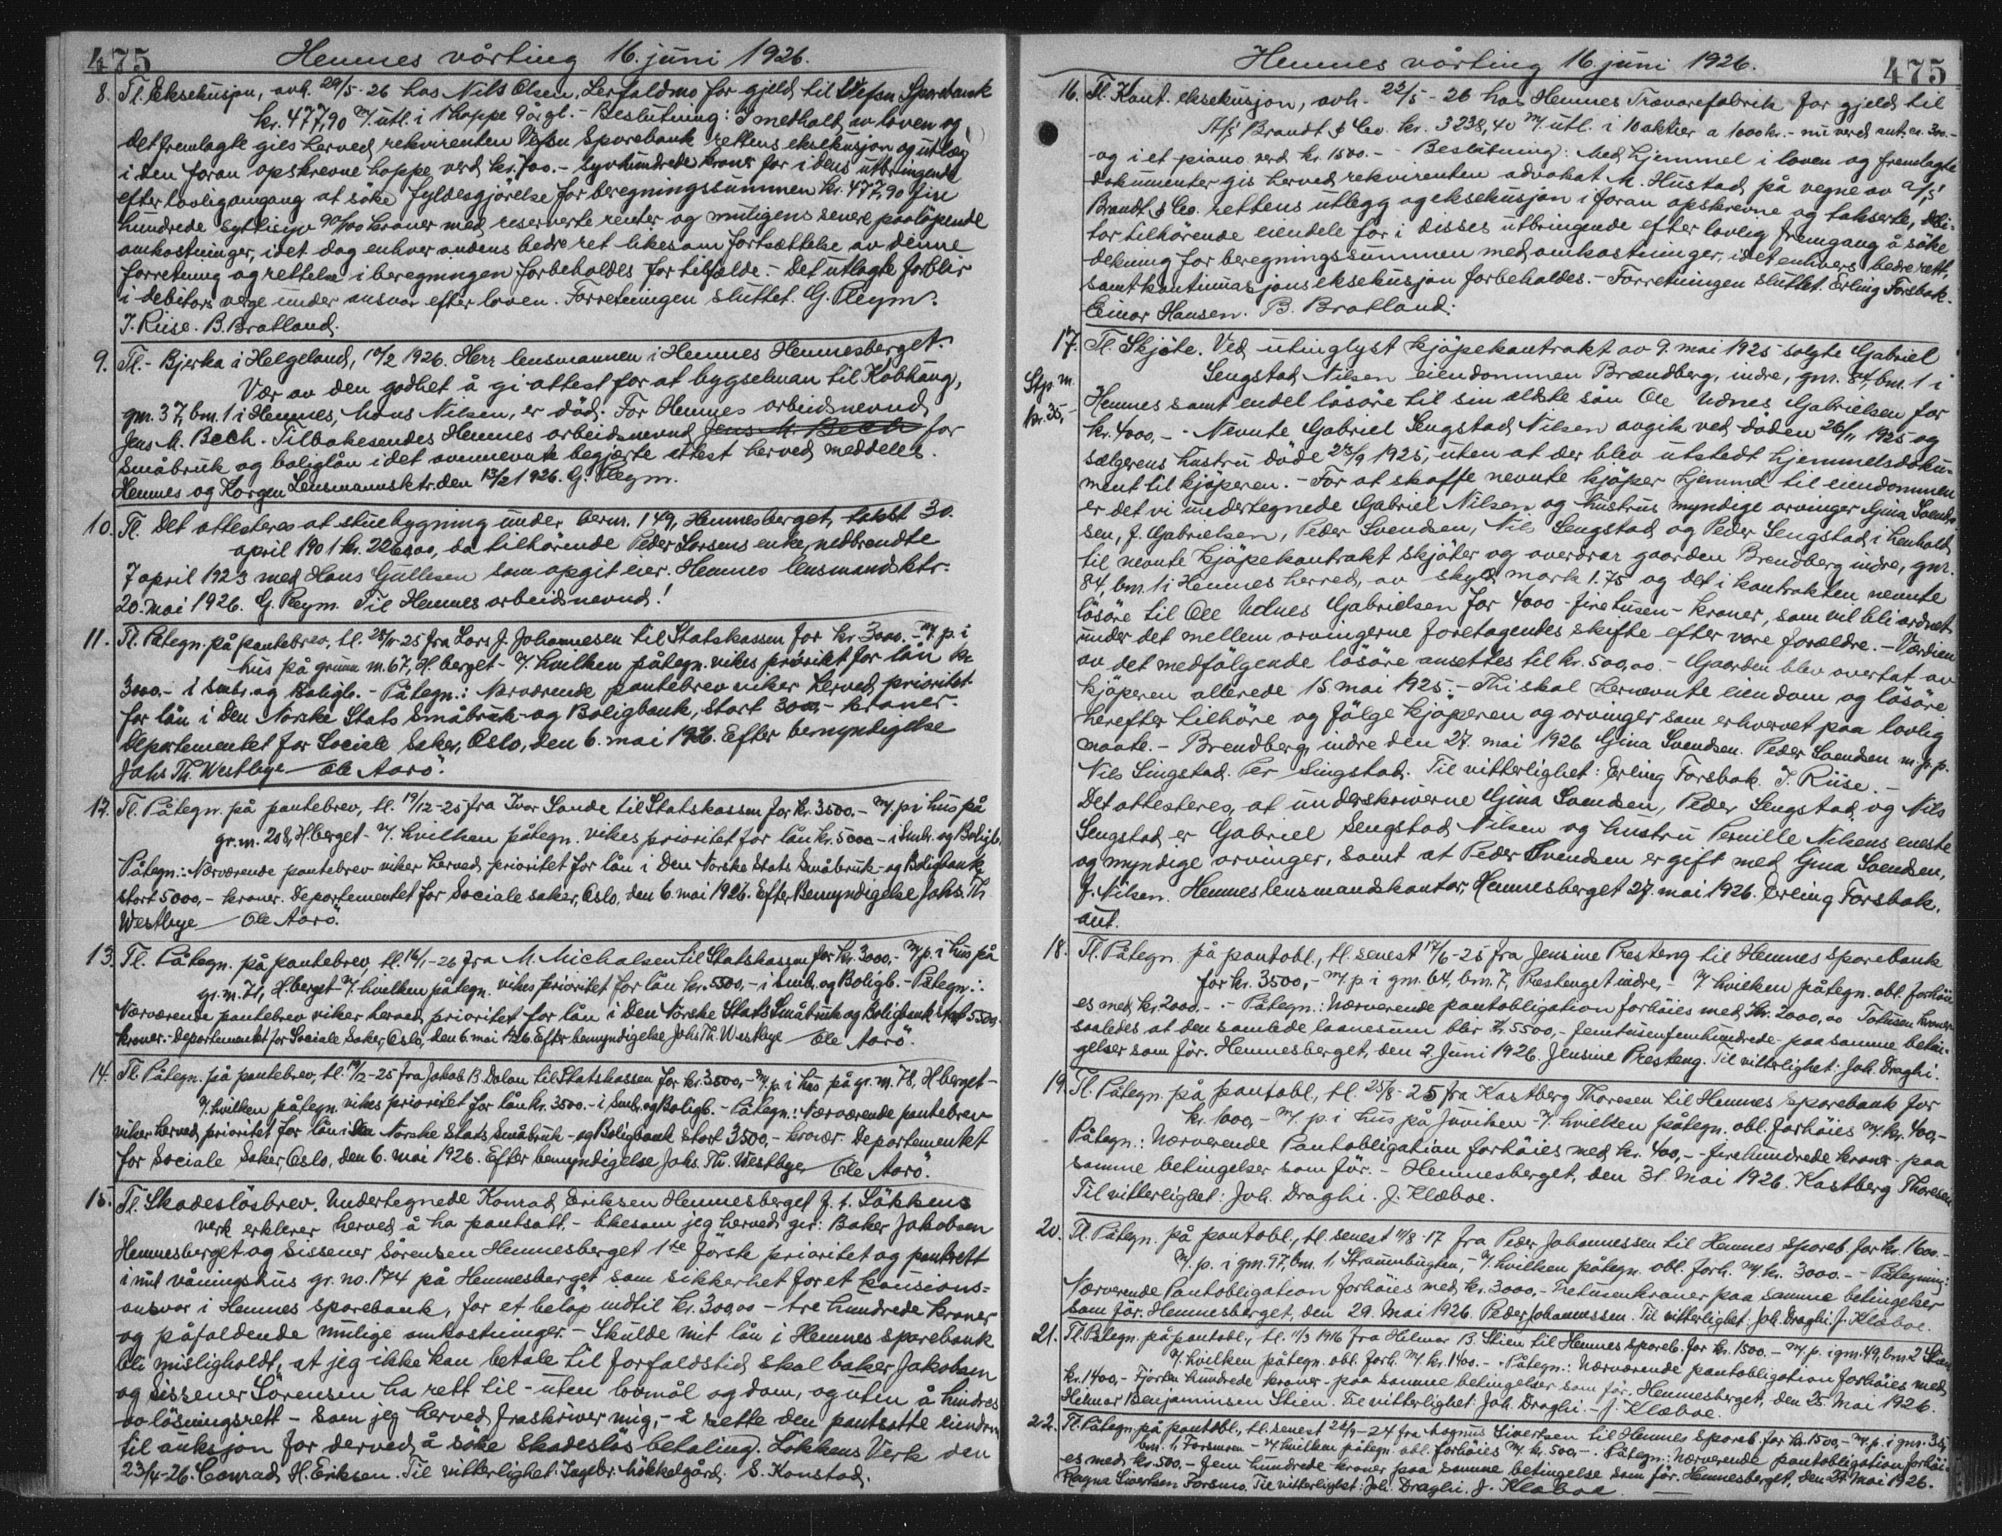 475
Hemnes vårting 16. juni 1926.
8. Tl. Eksekusjon, avh. 29/5-26 hos Nils Olsen, Lerfaldmo for gjeld til Vefsn Sparebank
kr. 477,90 m/utl. i 1 hoppe 9 årgl. - Beslutning: I medhold av loven og
det fremlagte gies herved rekvirenten Vefsn Sparebank rettens eksekusjon og utlæg
i den foran opskrevne hoppe verd kr. 700.- syvhundrede kroner for i dens utbringende
efter lovlig omgang at søke fyldesgjörelse for beregningssummen kr. 477,90 fire
hundrede syttisyv 90/100 kroner med reserverte renter og muligens senere paalöpende
omkostninger, idet dog enhver andens bedre ret likesom fortsættelse av denne
forretning og rettelse i beregningen forbeholdes for tilfælde. - Det utlagte forblir
i debitors verge under ansvar efter loven. Forretningen sluttet. G. Reym.
I. Riise. B. Bratland.
9. Tl. - Bjerka i Helgeland, 10/2 1926. Herr lensmannen i Hemnes Hemnesberget.
Vær av den godhet å gi attest for at bygselman til Kobhaug,
gnr. 37, bnr. 1 i Hemnes, Mons Nilsen, er död. For Hemnes arbeidsnevnd
Jens M. Bech. Tilbakesendes Hemnes arbeidsnevnd Jens M. Bech for
småbruk og boliglån idet ovennevnte begjærte attest herved meddeles.
Hemnes og Korgen Lensmannsktr. den 13/2 1926. G. Reym.
10. Tl. Det attesteres at stuebygning under berm. 149, Hemnesberget, takst 30.
april 1901 kr. 2260,00, da tilhörende Peder Larsens enke, nedbrendte
7 april 1923 med Hans Gullesen som opgit eier. Hemnes lensmandsktr.
20. mai 1926. G. Reym. Til Hemnes arbeidsnevnd!
11. Tl. Påtegn. på pantebrev, tl. 25/11-25 fra Lars J. Johannesen til Statskassen for kr. 3000.- m/p. i
hus på grunn m. 67, H.berget - v/ hvilken påtegn. vikes prioritet for lån kr.
3000.- i Smbr. og Boligb. - Påtegn.: Nærværende pantebrev viker herved prioritet
for lån i Den Norske Stats Småbruk- og Boligbank, stort 3000,- kroner.
Departementet for Sociale Saker, Oslo, den 6. mai 1926. Efter bemyndigelse
Johs Th. Westbye Ole Aarö.
12. Tl. Påtegn. på pantebrev, tl. 19/12-25 fra Ivar Sande til Statskassen for kr. 3500.- m/p i hus på
gr. m. 208, H.berget - v/ hvilken påtegn. vikes prioritet for lån kr. 5000 - i Smbr. og Boligb.
Påtegn.: Nærværende pantebrev viker herved prioritet for lån i Den Norske Stats Småbruk- og Boligbank
stort 5000,- kroner. Departementet for Sociale saker, Oslo, den 6. mai 1926. Efter Bemyndigelse Johs. Th
Westbye Ole Aarö.
13. Tl. Påtegn. på pantebrev, tl. 16/1-26 fra M. Michalsen til Statskassen for kr. 3000,- m/p. i hus på
gr. m. 71, H.berget v/ hvilken påtegn. vikes prioritet for lån kr. 5500,- i Smb. og Boligb. - Påtegn.:
Nærværende pantebrev viker herved prioritet for lån i Den Norske Stats Småbruk og Boligbank stort 5500,-
kroner. - Departementet for Sociale Saker, Oslo, den 6. mai 1926. Efter bemyndigelse Johs Th. Westbye Ole Aarö.
14. Tl. Påtegn. på pantebrev, tl. 19/12-25 fra Jakob B Dalan til Statskassen for kr. 3500,- m/p. i hus på gr. m. 78, H.berget -
v/ hvilken påtegn. vikes prioritet for lån kr. 3500.- i Smb. og Boligb. - Påtegn.: Nærværende pantebrev
viker herved prioritet for lån i Den Norske Stats Småbruk- og Boligbank stort 3500,- kroner. Departementet
for Sociale Saker, Oslo, den 6. mai 1926. Efter bemyndigelse Johs. Th. Westbye Ole Aarö.
15. Tl. Skadeslösbrev. Undertegnede Konrad Eriksen Hemnesberget f. t. Lökkens
verk erklærer herved å ha pantsatt - likesom jeg herved gir: Baker Jakobsen
Hemnesberget og Sissener Sörensen Hemnesberget 1ste förste prioritet og pantrett
i mit våningshus gr. no. 174 på Hemnesberget som sikkerhet for et kausions-
ansvar i Hemnes sparebank, for et belöp indtil kr. 300,00 - tre hundrede kroner
og påfaldende mulige omkostninger. - Skulde mit lån i Hemnes sparebank
bli misligholdt, at jeg ikke kan betale til forfaldstid skal baker Jakobsen
og Sissener Sörensen ha rett til - uten lovmål og dom, og uten å hindres
av lösningsrett - som jeg herved fraskriver mig, - å sette den pantsatte eiendom
til auksjon for derved å söke skadeslös betaling. Lökkens Verk den
23/4-26. Conrad H. Eriksen. Til vitterlighet: Ingebr. Mökkelgård. S. Konstad.
475
Hemnes vårting 16 juni 1926.
16. Tl. Kont. eksekusjon, avh. 22/5-26 hos Hemnes Trævarefabrik for gjeld til
A/S Brandt & Co. kr. 3238,40 m/ utl. i 10 aktier a 1000 kr. - nu verd ant. ca. 300.-
og i et piano verd kr. 1500.- - Beslutning: Med hjemmel i loven og fremlagte
dokumenter gis herved rekvirenten advokat M. Hustad på vegne av A/S
Brandt & Co. rettens utlegg og eksekusjon i foran opskrevne og takserte, debi-
tor tilhörende eiendele for i disses utbringende efter lovlig fremgang å söke
dekning for beregningssummen med omkostninger, idet enhvers bedre rett,
samt kontinuasjonseksekusjon forbeholdes. - Forretningen sluttet. Erling Forsbak.
Einar Hansen. B. Bratland.
17. Tl. Skjöte. Ved utinglyst kjöpekontrakt av 9. mai 1925 solgte Gabriel
Stp. m. kr. 35,-
Sengstad Nilsen eiendommen Brændberg, indre, gnr. 84, bnr. 1 i
Hemnes samt endel lösöre til sin eldste sön Ole Udnes Gabrielsen for
kr. 4000,- - Nevnte Gabriel Sengstad Nilsen avgik ved döden 26/11 1925 og
sælgerens hustru döde 23/9 1925, uten at der blev utstedt hjemmelsdoku-
ment til kjöperen. - For at skaffe nevnte kjöper hjemmel til eiendommen
er det vi undertegnede Gabriel Nilsen og hustrus myndige arvinger Gina Svend-
sen, J. Gabrielsen, Peder Svendsen, Nils Sengstad og Peder Sengstad i henhold
til nevnte kjöpekontrakt skjöter og overdrar gaarden Brendberg indre, gnr.
84, bnr. 1 i Hemnes herred, av skyld mark 1.75 og det i kontrakten nevnte
lösöre til Ole Udnes Gabrielsen for 4000 - firetusen - kroner, som vil bli ordnet
under det mellem arvingerne foretagendes skifte efter vore forældre. - Værdien
av det medfölgende lösöre ansettes til kr. 500,00. - Gaarden blev overtat av
kjöperen allerede 15. mai 1925. - Thi skal hernevnte eiendom og lösöre
herefter tilhöre og fölge kjöperen og arvinger som erhvervet paa lovlig
maate. - Brendberg indre den 27. mai 1926. Gina Svendsen. Peder Svendsen m. p. p.
Nils Singstad. Per Singstad. Til vitterlighet: Erling Forsbak. I. Riise. -
Det attesteres, at underskriverne Gina Svendsen, Peder Sengstad og Nils
Sengstad er Gabriel Sengstad Nilsen og hustru Pernille Nilsens eneste
og myndige arvinger, samt at Peder Svendsen er gift med Gina Svendsen,
f. Nilsen. Hemnes lensmandskontor, Hemnesberget 27. mai 1926. Erling Forsbak.
aut.
18. Tl. Påtegn. på pantobl., tl. senest 17/6-25 fra Jensine Presteng til Hemnes Sparebank
for kr. 3500,- m/p i gnr. 64, bnr. 7, Prestenget indre, - v/ hvilken påtegn. obl. forhöi-
es med kr. 2000.- - Påtegn.: Nærværende pantobligation forhöies med kr. 2000,00 Totusen kroner
saaledes, at den samlede laanesum blir kr. 5500,- femtusenfemhundrede - paa samme betin-
gelser som för. Hemnesberget, den 2. Juni 1926. Jensine Presteng. Til vitterlighet: Joh. Draghi.
19. Tl. Påtegn. på pantobl., tl. 25/8-25 fra Kastberg Thoresen til Hemnes Sparebank for
kr. 1000,- m/ p. i hus på Juviken - v/ hvilken påtegn. obl. forhöies m/ kr. 400,-
Påtegn.: Nærværende Pantobligation forhöies med kr. 400,- - firehundrede kroner - paa
samme betingelser som för. - Hemnesberget, den 31. Mai 1926. Kastberg Thoresen
Til vitterlighet: Joh. Draghi. J. Klæboe.
20. Tl. Påtegn. på pantobl., tl. senest 11/8-17 fra Peder Johannessen til Hemnes Spareb. for kr. 1600.-
m/p. i gnr. 97, bnr. 1, Straumbugten, - v/ hvilken påtegn. obl. forh. m/ kr. 3000.- - Påtegning:
Nærværende Pantobligation forhöies med kr. 3000,- Tretusen kroner paa samme betingelser
som för. Hemnesberget, den 29. Mai 1926. Peder Johannessen. Til vitterlighet: Joh. Draghi. J. Klæboe.
21. Tl. Påtegn. på pantobl., tl. 11/3 1916 fra Helmar B. Stien til Hemnes Spareb. for kr. 1500.- m/p. i gnr. 49, bnr. 2 Stien
v/ hvilken påtegn. obl. forh. m/ kr. 1400.- - Påtegn.: Nærværende pantobligation forhöies med
kr. 1400,- Fjorten hundrede kroner - paa samme betingelser som för. Hemnesberget, den 25. Mai 1926.
Helmar Benjaminsen Stien. Til vitterlighet: Joh. Draghi. - J. Klæboe.
22. Tl. Påtegn. på pantobl., tl. senest 26/9-24 fra Magnus Sivertsen til Hemnes Spareb. for kr. 1500,- m/p. i gnr. 35,
bnr. 1, Forsmoen - v/ hvilken påtegn. obl. forhöies m/ kr. 500,- - Påtegn.: Nærværende pantobligation forhöi-
es med kr. 500.- Fem hundrede kroner paa samme betingelse som för. Hemnesberget, den 27 Mai 1926.
Magna Sivertsen Forsmo. Til vitterlighet: Joh. Draghi. J. Klæboe.